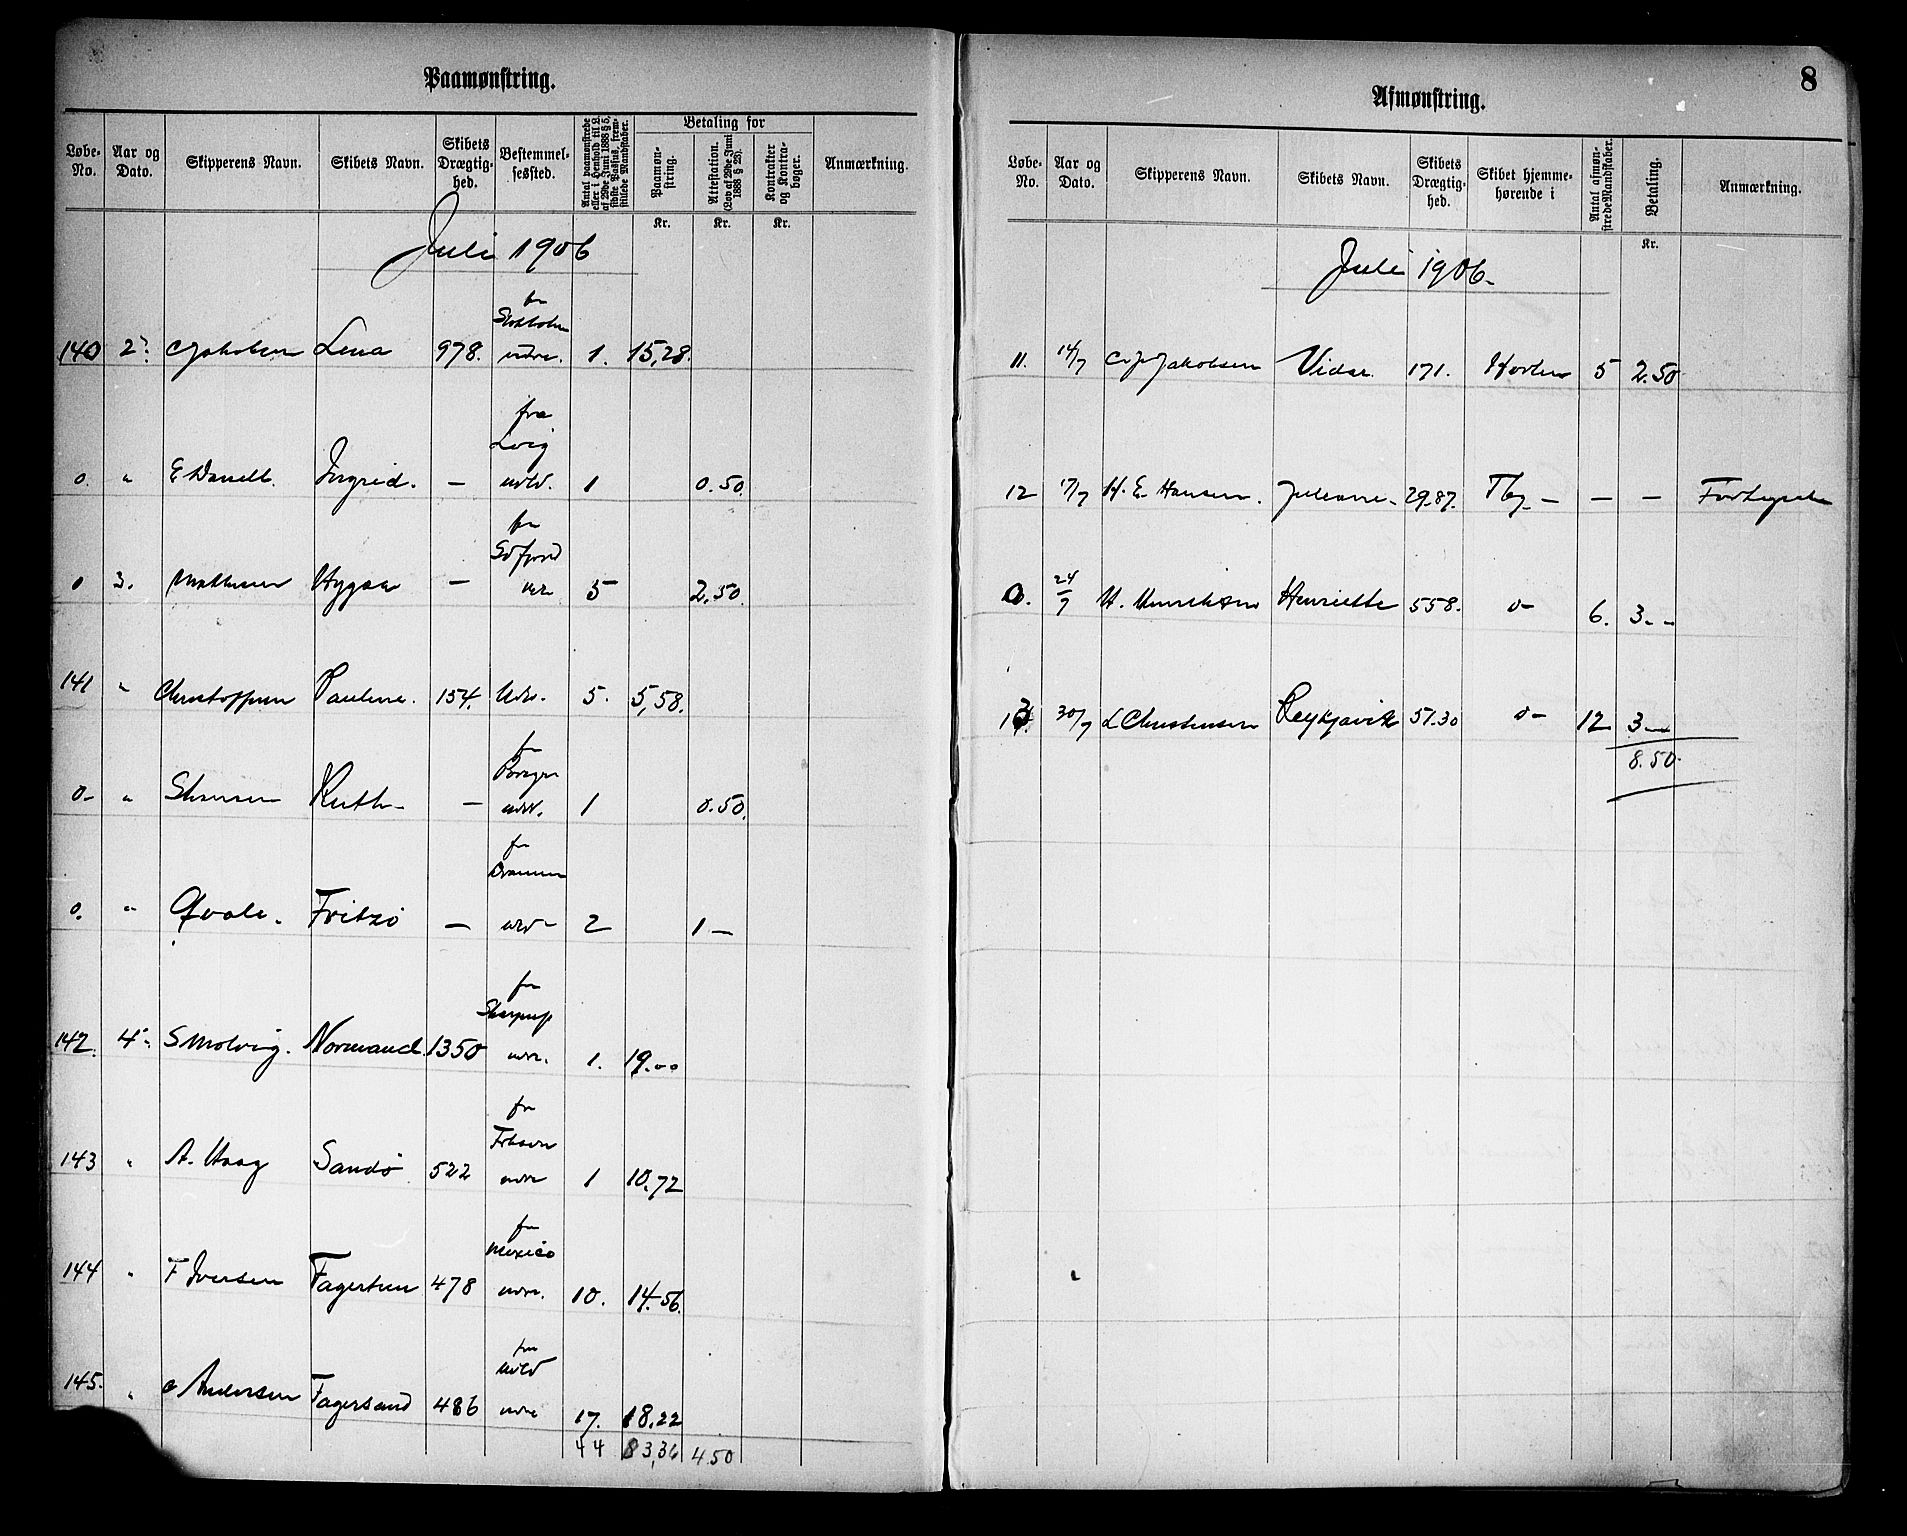 Paamønstring.
Løbe-No. | Aar og Dato. | Skipperens Navn. | Skibets Navn. | Skibets Drægtig-hed. | Bestemmel-sessted. | Antal paamønstrede eller i Henhold til L. af 29de Juni 1888 § 5, sidste Passus, frem-stillede Mandskaber. | Betaling for | Paamøn-string. | Attestation. (Lov af 29de Juni 1888 § 23). | Kontrakter og Kontra-bøger. | Anmærkning.
Kr. Kr. Kr.
Juli 1906
140 2. Jakobsen Lena 978. fra udre. 1. 15,28.
0. " E Ingrid. — fra Lvig udld. 1 0.50.
0 3. Mathisen Hygæa — fra 5 2,50.
141 " Christoffersen Pauline. 154. Udr. 5. 5,58.
0- " Ruth — fra udld. 1 0.50.
0. " Qvale. Fritzö — fra Drammen 2 1 —
142. 4. S Molvig. Normand. 1350 fra udre. 1. 19.00
143 " A. Haag Sandö 522 fra udre 1 10.72
144 " F Iversen 478 fra Mexico udre. 10. 14.56.
145. " C Andersen Fagersand 486 fra udld udre 17. 18.22
44 83,36 4.50
8
Afmønstring.
Løbe-No. | Aar og Dato. | Skipperens Navn. | Skibets Navn. | Skibets Drægtig-hed. | Skibet hjemme-hørende i | Antal afmøn-strede Mandskaber. | Betaling. | Anmærkning.
Kr.
Juli 1906.
11. 14/7 Jakobsen Vidar. 171. Horten 5 2.50
12 17/7 H. E. Hansen. Juliane. 29.87. Tbg — — —
0. 24/7 H. Henriette 558. d- 6. 3 - -
13. 30/7 L Christensen Reykjavik 51.30 d- 12 3 —
8.50.